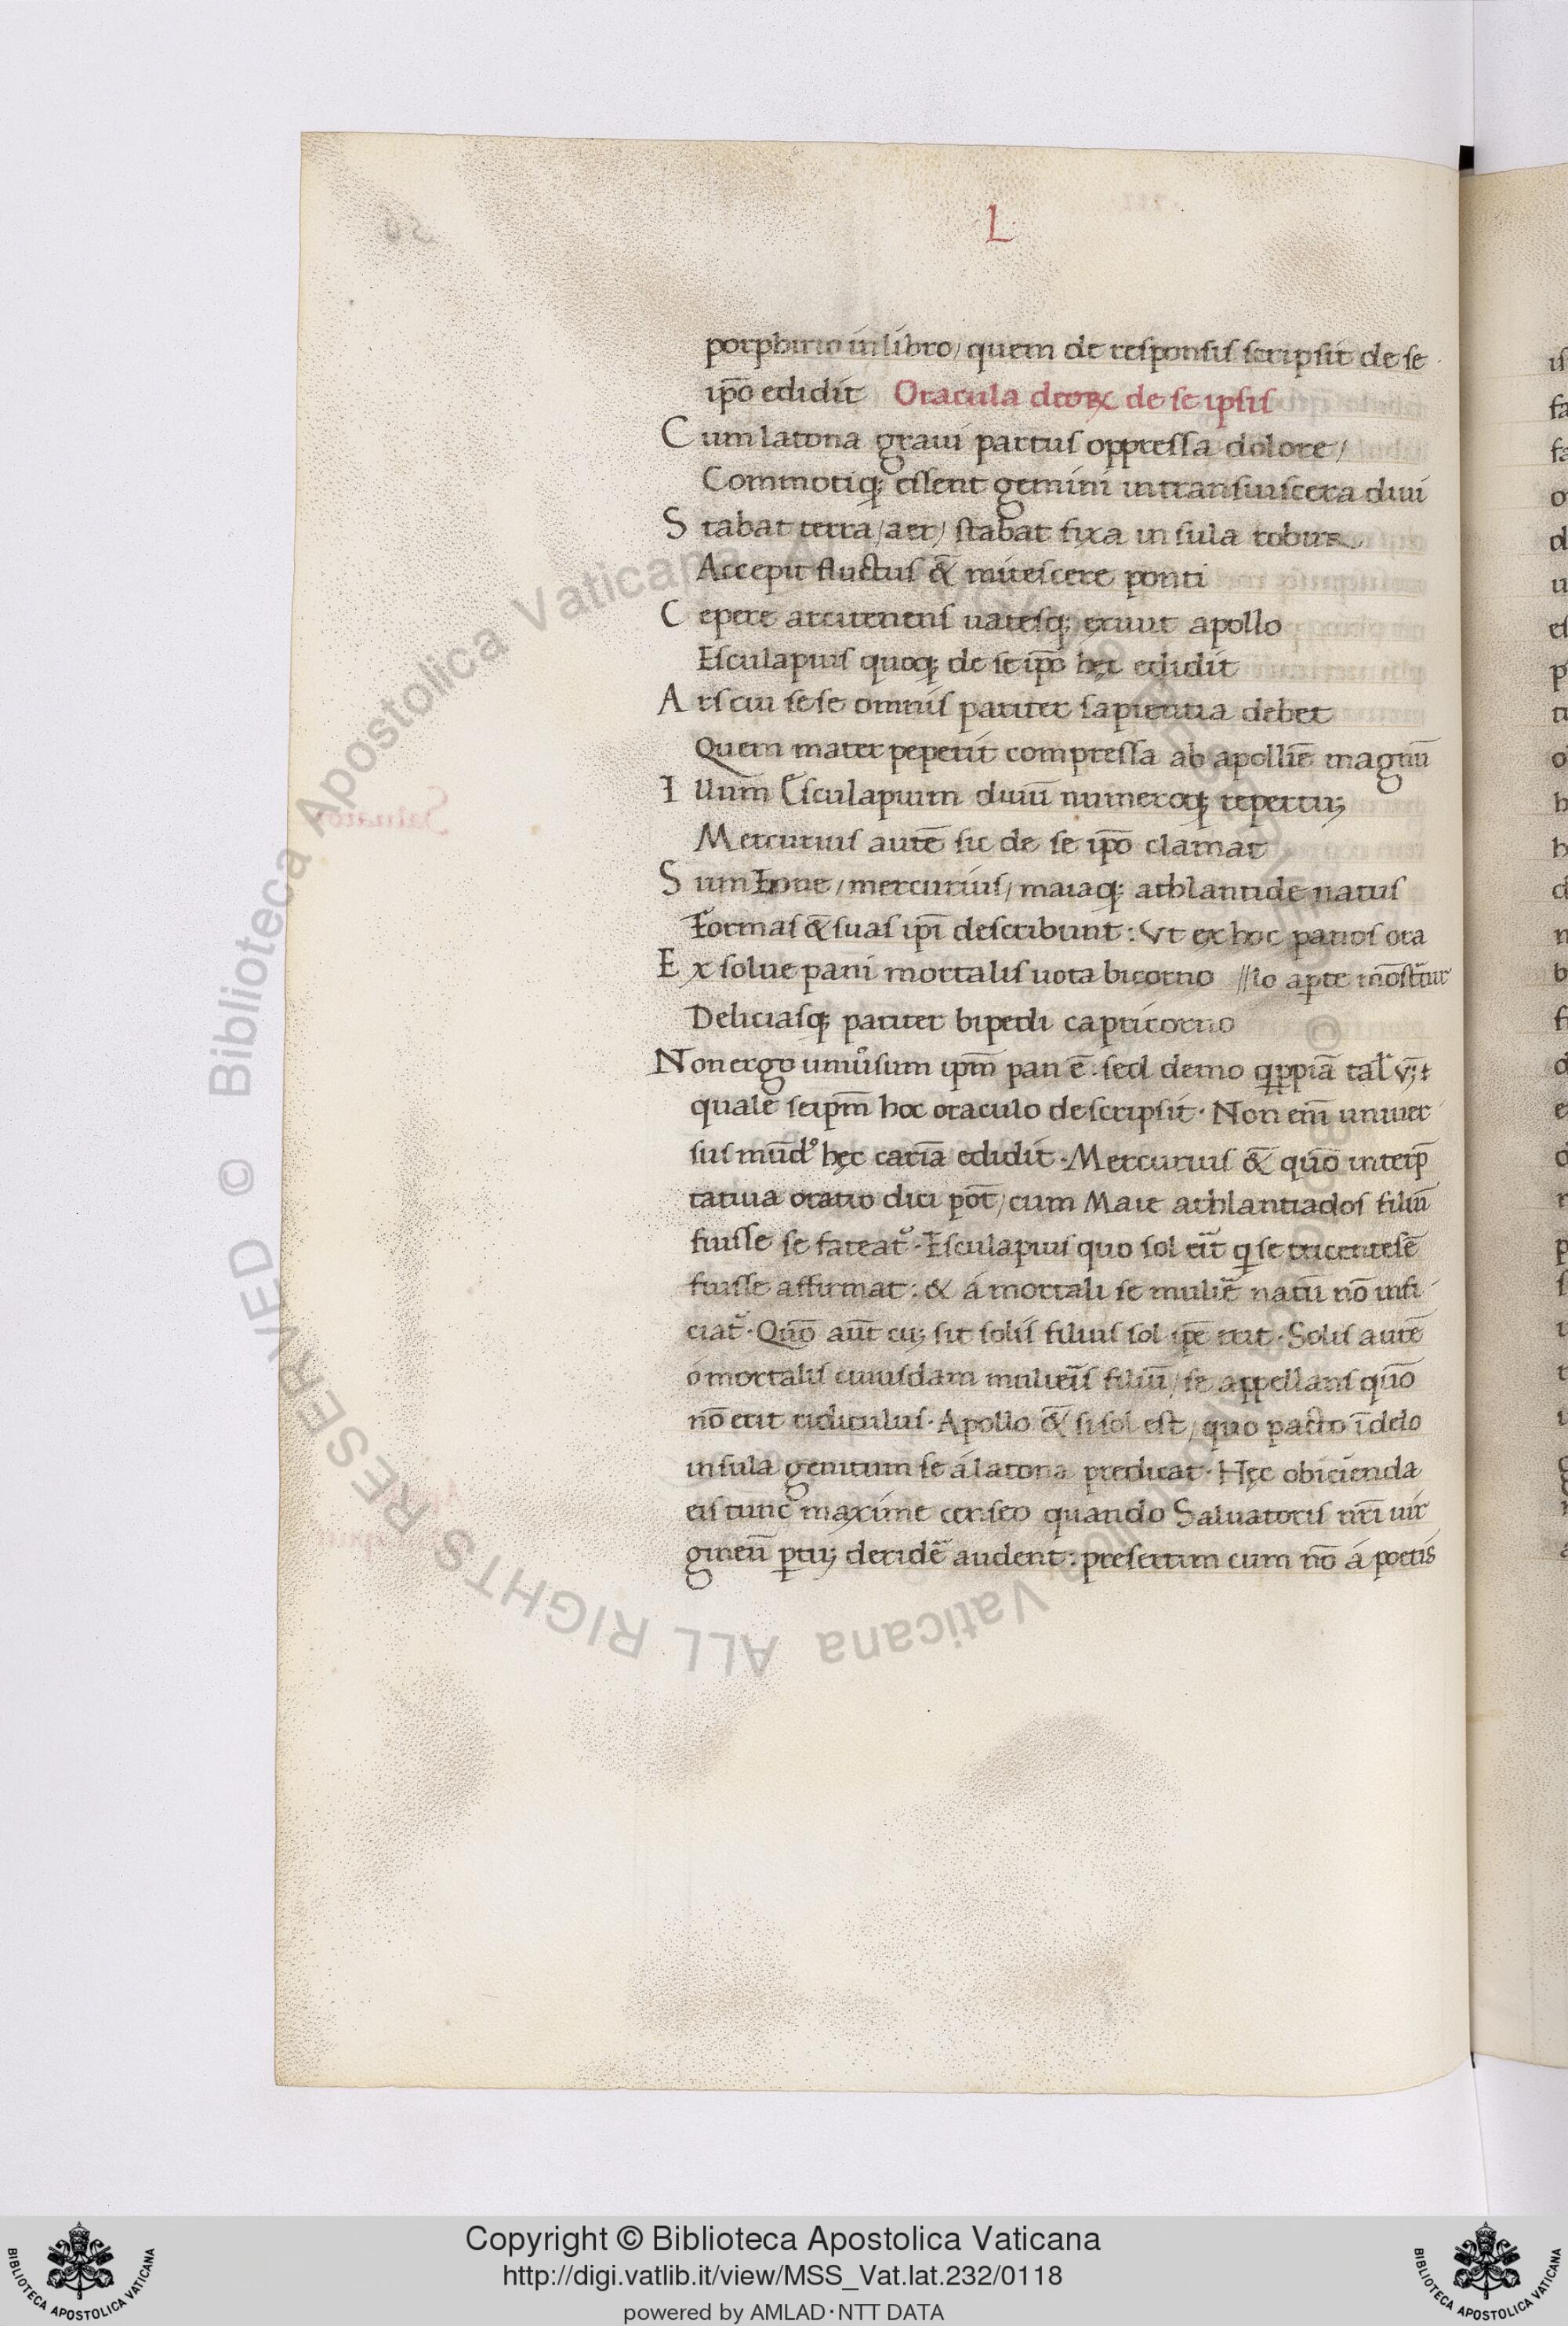 L
porphirio in libro/ quem de responsis scripsit de se
ip̄o edidit Oracula deoꝝ de se ipsis
Cum latona graui partus oppressa dolore/
Commotiq; essent gemini intra uiscera diui
Stabat terra/ aer/ stabat fixa insula robur
Accepit fluctus &̄ mitescere ponti
Cepere arcitenens uatesq; exiuit apollo
Esculapius quoq; de se ip̄o hęc edidit
Ars cui sese omnis pariter sapientia debet
Quem mater peperit compressa ab apollīe magnū
Illum Esculapium diuū numeroq; repertu;
Mercurius autē sic de se ip̄o clamat
Sum /mercurius/ maiaq; athlantide natus
Formas &̄ suas ip̄i describunt: Vt ex hoc panos ora
Exsolue pani mortalis uota bicorno //lo apte mōstrat̄ur
Deliciasq; pariter bipedi capricorno
Non ergo uniūsum ip̄m pan ē. sed demo
quale seip̄m hoc oraculo descripsit. Non em̄ uniuer
sus mūd' hęc carīa edidit. Mercurius &̄ quō interp̄
tatiua oratio dici pōt/ cum Maie athlantiados filiū
fuisse se fateat̄. Esculapius quo sol erit q se tricentesē
fuisse affirmat: & á mortali se muliē natū nō infi
ciat̄. Quō aūt cu; sit solis filius sol ip̄e erit. Solis autē
ó mortalis cuiusdam muliēis filiū/ se appellans quō
nō erit ridiculus. Apollo &̄ si sol est/ quo pacto ī delo
insula genitum se á latona predicat. Hęc obicienda
eis tunc maxime censeo quando Saluatoris nr̄i uir
gineū ptu; deridē audent: presertim cum nō á poetis
Copyright © Biblioteca Apostolica Vaticana
http://digi.vatlib.it/view/MSS_Vat.lat.232/0118
powered by AMLAD·NTT DATA